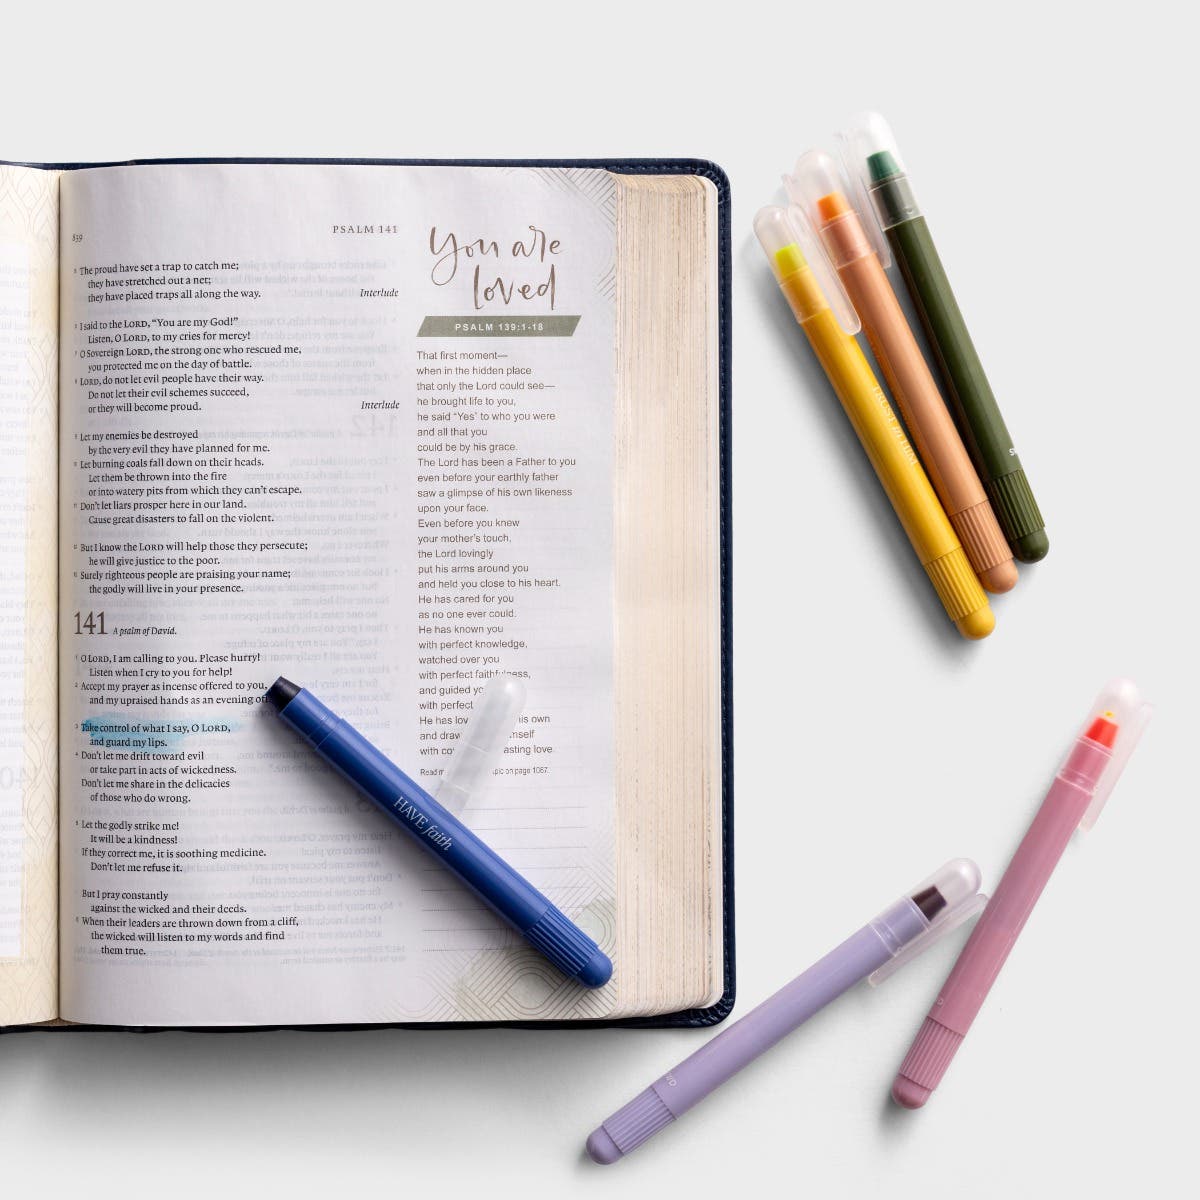 839
PSALM 141
5 The proud have set a trap to catch me;
they have stretched out a net;
they have placed traps all along the way.
Interlude
6 I said to the LORD, “You are my God!”
Listen, O LORD, to my cries for mercy!
7 O Sovereign LORD, the strong one who rescued me,
you protected me on the day of battle.
8 LORD, do not let evil people have their way.
Do not let their evil schemes succeed,
or they will become proud.
Interlude
9 Let my enemies be destroyed
by the very evil they have planned for me.
10 Let burning coals fall down on their heads.
Let them be thrown into the fire
or into watery pits from which they can’t escape.
11 Don’t let liars prosper here in our land.
Cause great disasters to fall on the violent.
12 But I know the LORD will help those they persecute;
he will give justice to the poor.
13 Surely righteous people are praising your name;
the godly will live in your presence.
141 A psalm of David.
1 O LORD, I am calling to you. Please hurry!
Listen when I cry to you for help!
2 Accept my prayer as incense offered to you,
and my upraised hands as an evening
3 Take control of what I say, O LORD,
and guard my lips.
4 Don’t let me drift toward evil
or take part in acts of wickedness.
Don’t let me share in the delicacies
of those who do wrong.
5 Let the godly strike me!
It will be a kindness!
If they correct me, it is soothing medicine.
Don’t let me refuse it.
But I pray constantly
against the wicked and their deeds.
6 When their leaders are thrown down from a cliff,
the wicked will listen to my words and find
them true.
You are
loved
PSALM 139:1-18
That first moment—
when in the hidden place
that only the Lord could see—
he brought life to you,
he said “Yes” to who you were
and all that you
could be by his grace.
The Lord has been a Father to you
even before your earthly father
saw a glimpse of his own likeness
upon your face.
Even before you knew
your mother’s touch,
the Lord lovingly
put his arms around you
and held you close to his heart.
He has cared for you
as no one ever could.
He has known you
with perfect knowledge,
watched over you
with perfect faithfulness,
and guided
with perfect
He has his own
and
with love.
Read on page 1087.
HAVE faith
TRUST in HIM